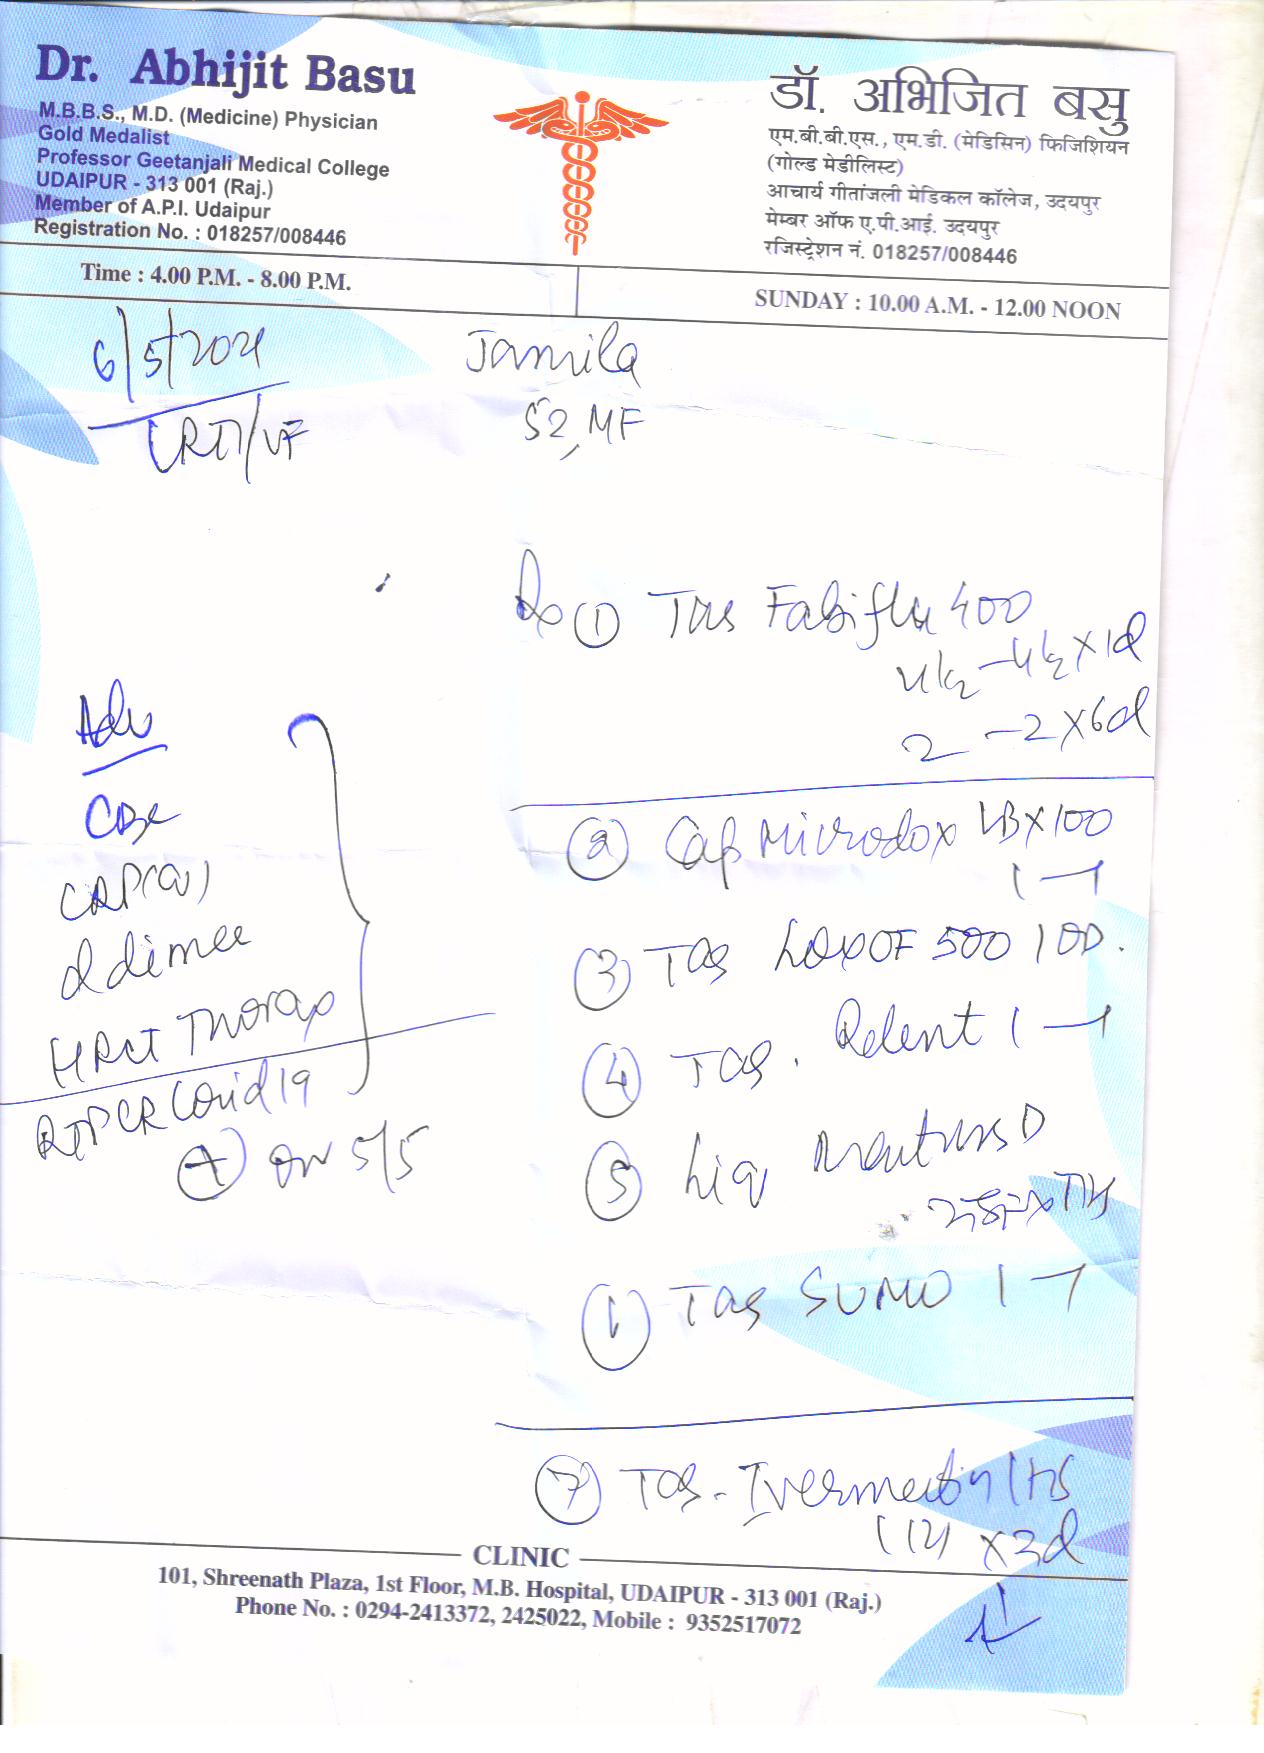 Dr. Abhijit Basu
M.B.B.S., M.D. (Medicine) Physician
Gold Medalist
Professor Geetanjali Medical College
UDAIPUR - 313 001 (Raj.)
Member of A.P.I. Udaipur
Registration No. : 018257/008446
डॉ. अभिजित बसु
एम.बी.बी.एस., एम.डी. (मेडिसिन) फिजिशियन
(गोल्ड मेडीलिस्ट)
आचार्य गीतांजली मेडिकल कॉलेज, उदयपुर
मेम्बर ऑफ ए.पी.आई. उदयपुर
रजिस्ट्रेशन नं. 018257/008446
Time : 4.00 P.M. - 8.00 P.M.
SUNDAY : 10.00 A.M. - 12.00 NOON
6/5/2021
Jamila
52, MF
Adv
CBC
CRP(Q)
d dimer
HRCT Thorax
RTPCR Covid 19
+ on 5/5
Rx 1 Tab Fabiflu 400
2 - 2 x 6d
2 Cap Microdox LB x 100
1 - 1
3 Tab LoxOF 500 1 OD.
4 Tab. Relent 1 - 1
5 Liq D
6 Tab SUMO 1 - 1
7 Tab - Ivermectin 1 HS
(12) x 3d
CLINIC
101, Shreenath Plaza, 1st Floor, M.B. Hospital, UDAIPUR - 313 001 (Raj.)
Phone No. : 0294-2413372, 2425022, Mobile : 9352517072